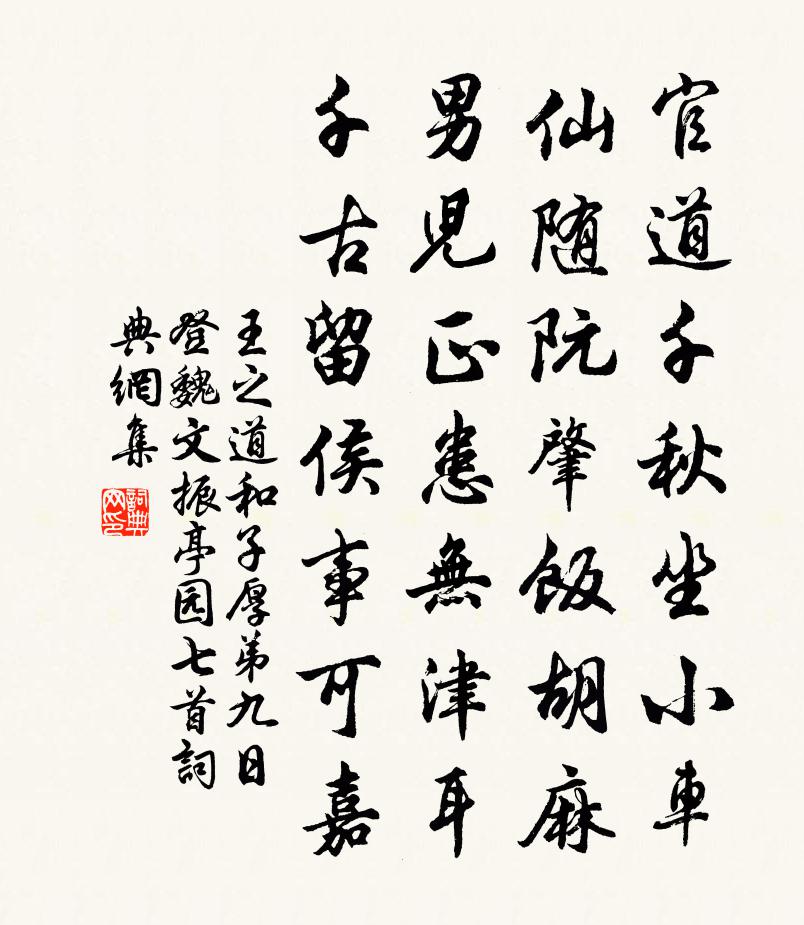 官道千秋坐小車
仙随阮肇飯胡麻
男児正患無津耳
千古留侯事可嘉
王之道和子厚第九日
登魏文振亭园七首詞
典網集
詞典
网印